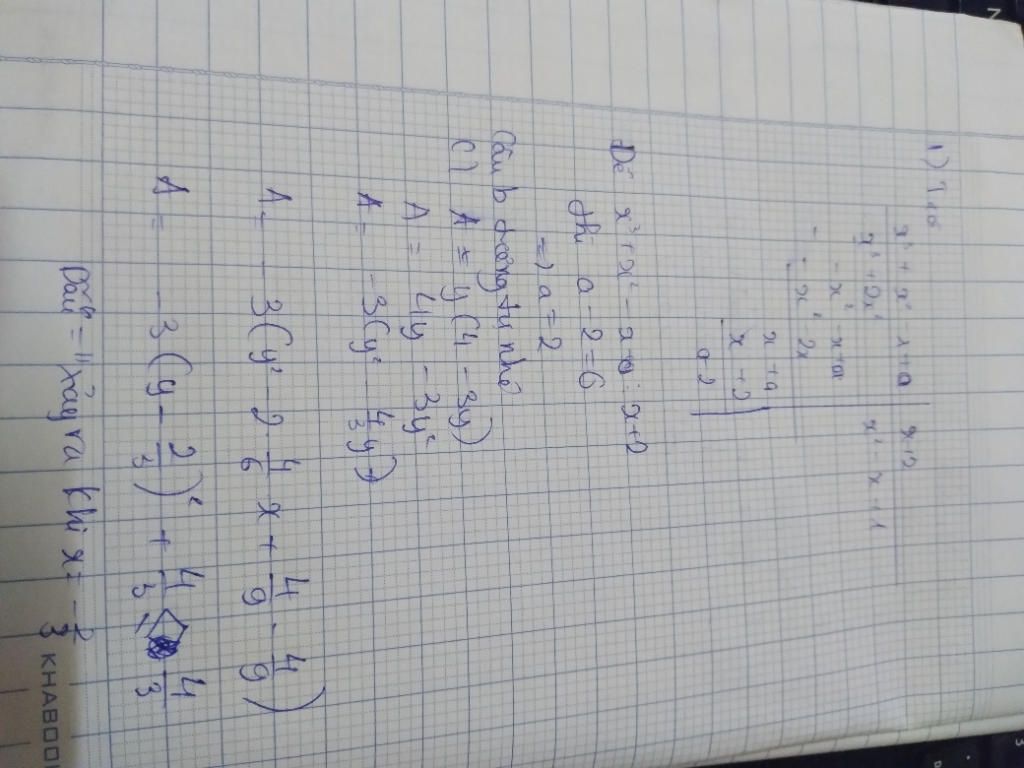 1) Ta có
x³ + x² - x + a | x+2
x³ + 2x² | x² - x + 1
- x² - x + a
- - x² - 2x
x + a
x + 2
a - 2
Để x³ + x² - x + a : x+2
thì a - 2 = 6
=> a = 2
Câu b tương tự nhá
c) A = y(4 - 3y)
A = 4y - 3y²
A = -3(y² - 4/3 y)
A = -3(y² - 2 4/6 x + 4/9 - 4/9)
A = -3(y - 2/3)² + 4/3 ≤ 4/3
Dấu "=" xảy ra khi x = - 2/3
KHABOOK